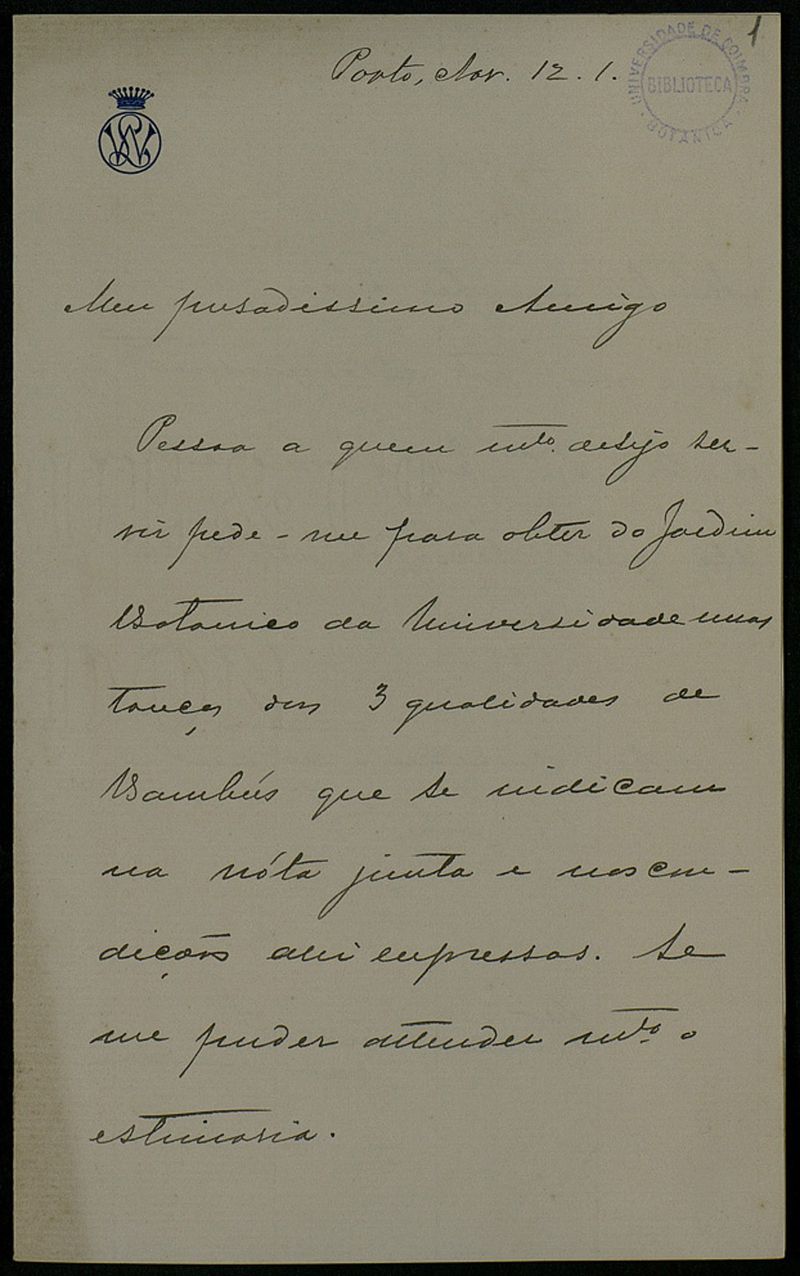 1
UNIVERSIDADE DE COIMBRA
BIBLIOTECA
BOTANICA
Porto, Nov. 12. 1.
Meu presadissimo Amigo
Pessoa a quem mto. desejo ser-
vir pede-me para obter do Jardim
Botanico da Universidade umas
touças das 3 qualidades de
Bambús que se indicam
na nóta junta e nas con-
dições ahi expressas. Se
me puder attender mto. o
estimaria.